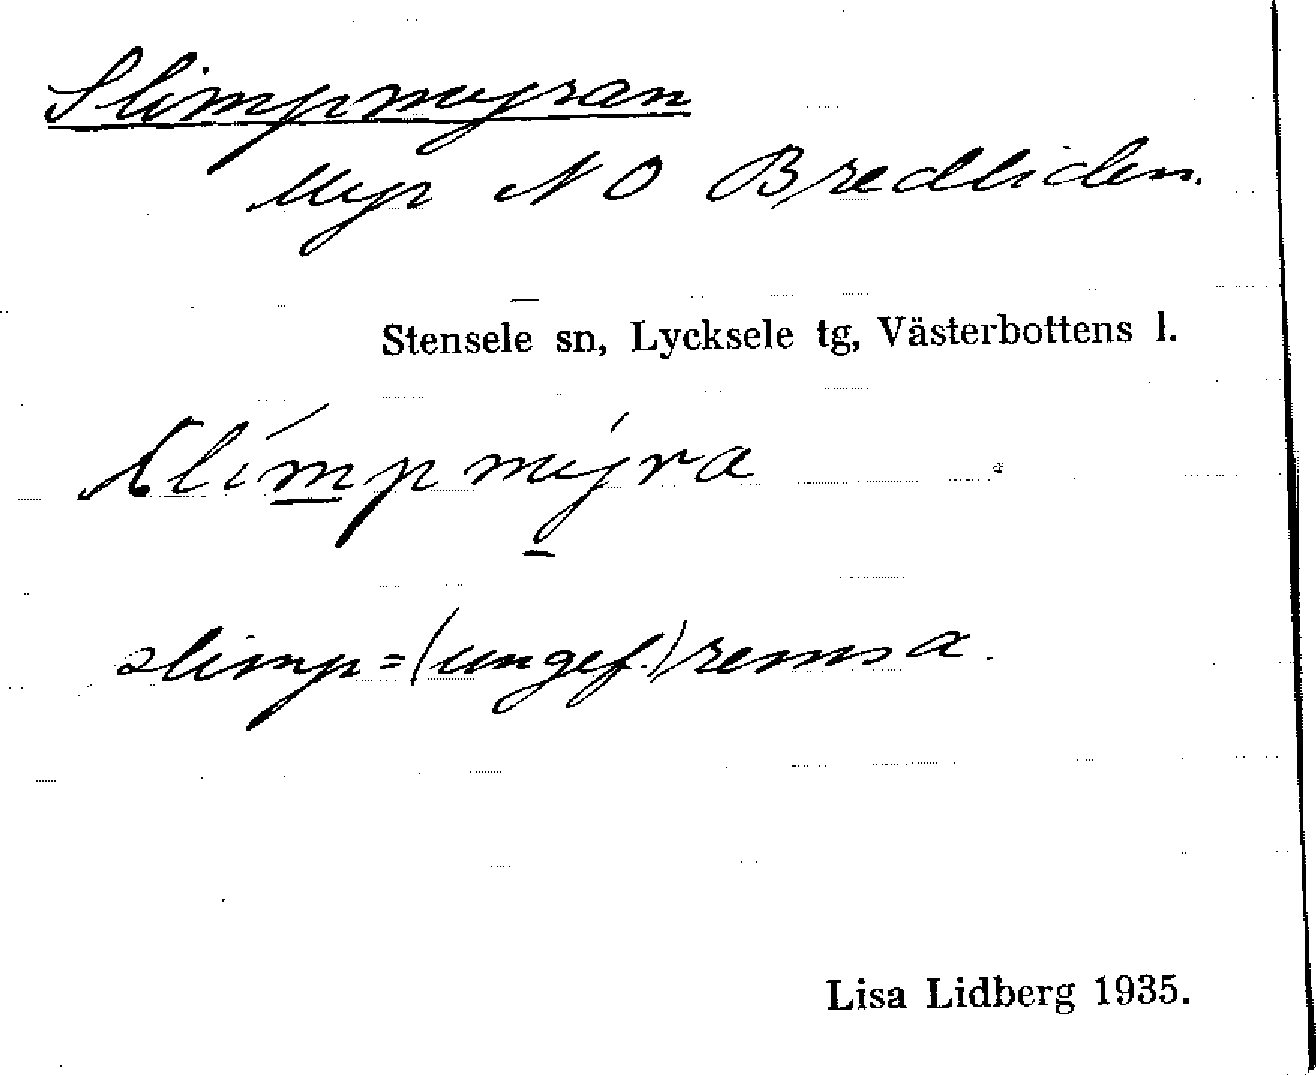 Slimpmyran
Myr NO Bredliden.
Stensele sn, Lycksele tg, Västerbottens l.
Slímpmýra
slimp=(ungef.) remsa.
Lisa Lidberg 1935.